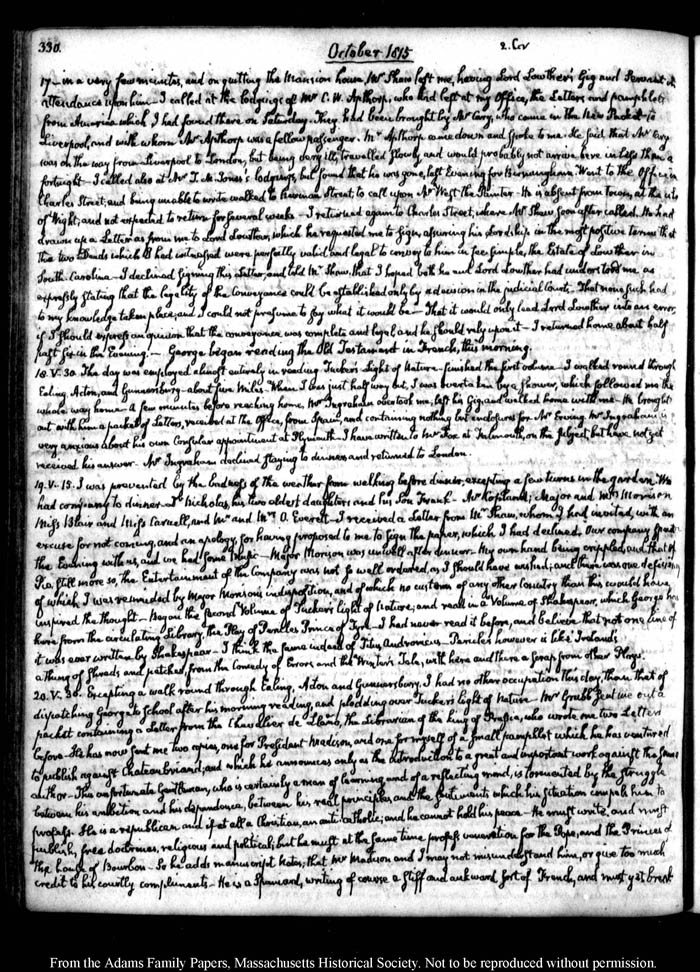 330.
October 1815
2. Cor
17- in a very few minutes, and on quitting the Mansion house Mr Shaw left me, having Lord Lowther's Gig and Servant in
attendance upon him - I called at the lodgings of Mr C. W. Apthorp, who had left at my Office, the Letters and pamphlets
from America which I had found there on Saturday. They had been brought by Mr Cary, who came in the New Packet to
Liverpool, and with whom Mr Apthorp was a fellow passenger. Mr Apthorp came down and spoke to me. He said that Mr Cary
was on the way from Liverpool to London, but being very ill, travelled slowly and would probably not arrive here in less than a
fortnight - I called also at Mr T. M. Jones's lodgings, but found that he was gone, last Evening for Birmingham. Went to the Office in
Charles Street; and being unable to write walked to Newman Street to call upon Mr West the Painter - He is absent from town, at the isle
of Wight; and not expected to return for several weeks - I returned again to Charles Street, where Mr Shaw soon after called. He had
drawn up a Letter as from me to Lord Lowther, which he requested me to sign, assuring his Lordship in the most positive terms that
the two Deeds which I had witnessed were perfectly valid and legal to convey to him in fee simple, the Estate of Lowther in
South-Carolina - I declined signing this Letter, and told Mr Shaw, that I hoped both he and Lord Lowther had understood me as
expressly stating that the legality of the Conveyance could be established only by a decision in the judicial Courts. That none such had
to my knowledge taken place; and I could not presume to say what it would be - That it would only lead Lord Lowther into an error,
if I should express an opinion that the conveyance was complete and legal and he should rely upon it - I returned home about half
past six in the Evening. - George began reading the Old Testament in French, this morning.
18. V. 30. The day was employed almost entirely in reading Tucker's Light of Nature - finished the first volume - I walked round through
Ealing, Acton, and Gunnersbury - about five Miles. When I was just half way out, I was overtaken by a shower, which followed me the
whole way home - A few minutes before reaching home, Mr Ingraham overtook me; left his Gig, and walked home with me - He brought
out with him a packet of Letters, received at the Office, from Spain, and containing nothing but enclosures for Mr Erving. Mr Ingraham is
very anxious about his own Consular appointment at Plymouth - I have written to Mr Fox at Falmouth, on the subject but have not yet
received his answer. Mr Ingraham declined staying to dinner and returned to London.
19. V. 15. I was prevented by the badness of the weather from walking before dinner, excepting a few turns in the garden. We
had company to dinner - Dr Nicholas, his two oldest daughters and his Son Frank - Mr Copland; Major and Mrs Morrison
Miss Blair and Miss Carnell, and Mr and Mrs O. Everett - I received a Letter from Mr Shaw, whom I had invited, with an
excuse for not coming, and an apology for having proposed to me to sign the paper, which I had declined. Our company spent
the Evening with us, and we had some Music - Major Morison was unwell after dinner - My own hand being crippled, and that of
still more so, the Entertainment of the Company was not so well ordered, as I should have wished; and there was one deficiency
of which I was reminded by Major Morison's indisposition, and of which no custom of any other Country than this would have
inspired the thought - Began the second Volume of Tucker's light of Nature; and read in a Volume of Shakespear, which George has
here from the circulating Library, the Play of Pericles Prince of Tyre - I had never read it before, and believe that not one line of
it was ever written by Shakespear - I think the same indeed of Titus Andronicus - Pericles however is like Ireland's
a thing of shreds and patches, from the Comedy of Errors and the Winter's Tale, with here and there a scrap from other Plays.
20. V. 30. Excepting a walk round through Ealing, Acton and Gunnersbury, I had no other occupation this day, than that of
dispatching George to School after his morning reading, and plodding over Tucker's light of Nature - Mr Grubb sent me out a
packet containing a Letter from the Chevalier de the Librarian of the King of who wrote me two Letters
before - He has now sent me two copies, one for President Madison, and one for myself of a small pamphlet which he has ventured
to publish against Chateaubriand; and which he announces only as the introduction to a great and important work against the same
author - This unfortunate Gentleman, who is certainly a man of learning and of a reflecting mind, is tormented by the struggle
between his ambition and his dependence, between his real principles, and the sentiments which his situation compels him to
profess. He is a republican and if at all a Christian, an anti-catholic; and he cannot hold his peace - He must write, and must
publish, free doctrines, religious and political; but he must at the same time profess veneration for the Pope, and the Princes of
the house of Bourbon - So he adds manuscript Notes, that Mr Madison and I may not misunderstand him, or give too much
credit to his courtly compliments - He is a Spaniard, writing of course a stiff and awkward sort of French, and must yet break
From the Adams Family Papers, Massachusetts Historical Society. Not to be reproduced without permission.